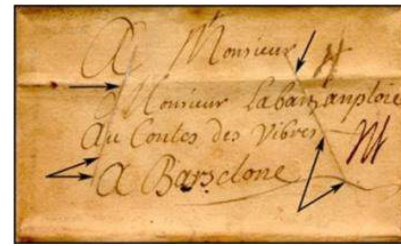 A Monsieur
Monsieur anploie
Au Contes des Vibres
A Barselone